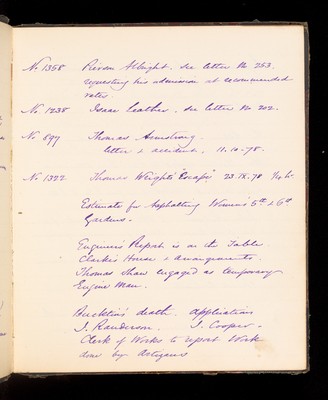 No 1358 Albright. See letter No 253
requesting his admission at recommended
rates
No 1238 Isaac Leather. See letter No 202.
No 897 Thomas Armstrong.
letter & accident. 11.10.78.
No 1322 Thomas Wright's "Escape" 23.IX.78
Estimate for Asphalting Women's 5th & 6th
Gardens.
Engineers Report is on the Table
Clerk's House & arrangements.
Thomas Shaw engaged as temporary
Engine Man.
death. applications
J. J. Cooper.
Clerk of Works to report Work
done by